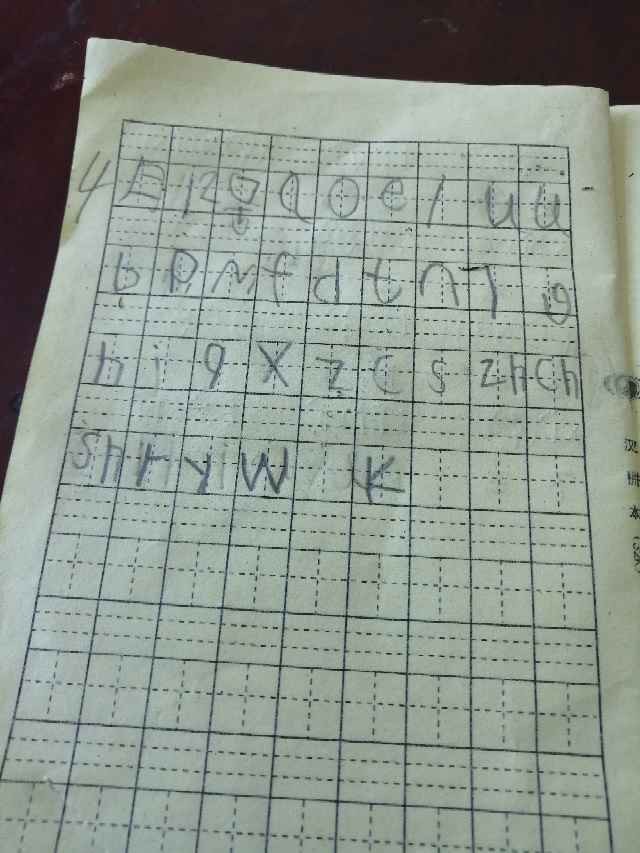 4月12号 a o e i u ü
b p m f d t n l g
h j q x z c s zh ch
sh r y w k
汉
本